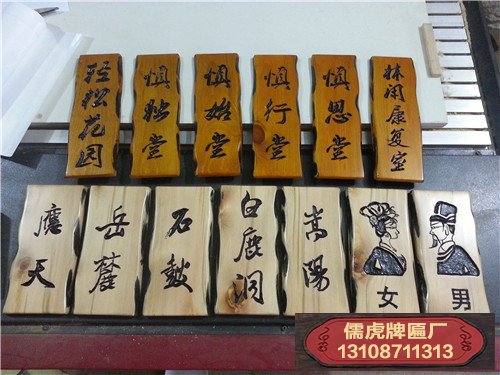 轻松花园
慎 堂
慎始堂
慎行堂
慎思堂
休闲康复室
應天
岳麓
石鼓
白鹿洞
嵩陽
女
男
儒虎牌匾厂
13108711313